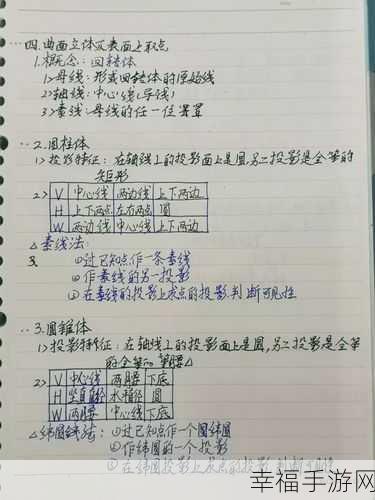 四.曲面立体及表面上取点
1.概念:回转体
1>母线:形成回转体的原始线
2>轴线:中心线(导线)
3>素线:母线的任一位置
2.圆柱体
1>投影特征:在轴线⊥的投影面上是圆,另二投影是全等的
矩形
2> V 中心线 两边线 上下两边
H 上下两点 左右两点 圆
W 两边线 中心线 上下两边
△素线法:
①过已知点作一条素线
②作素线的另一投影
③在素线的投影上求点的投影判断可见性
3.圆锥体
1>投影特征:在轴线⊥的投影面上是圆,另二投影是全等
的等腰△
2> V 中心线 两腰 下底
H 竖直径 水平径 圆
W 两腰 中心线 下底
△纬圆法:①过已知点作一个纬圆
②作纬圆的一个投影
③在纬圆投影上求点的投影判断可见性
幸福手游网